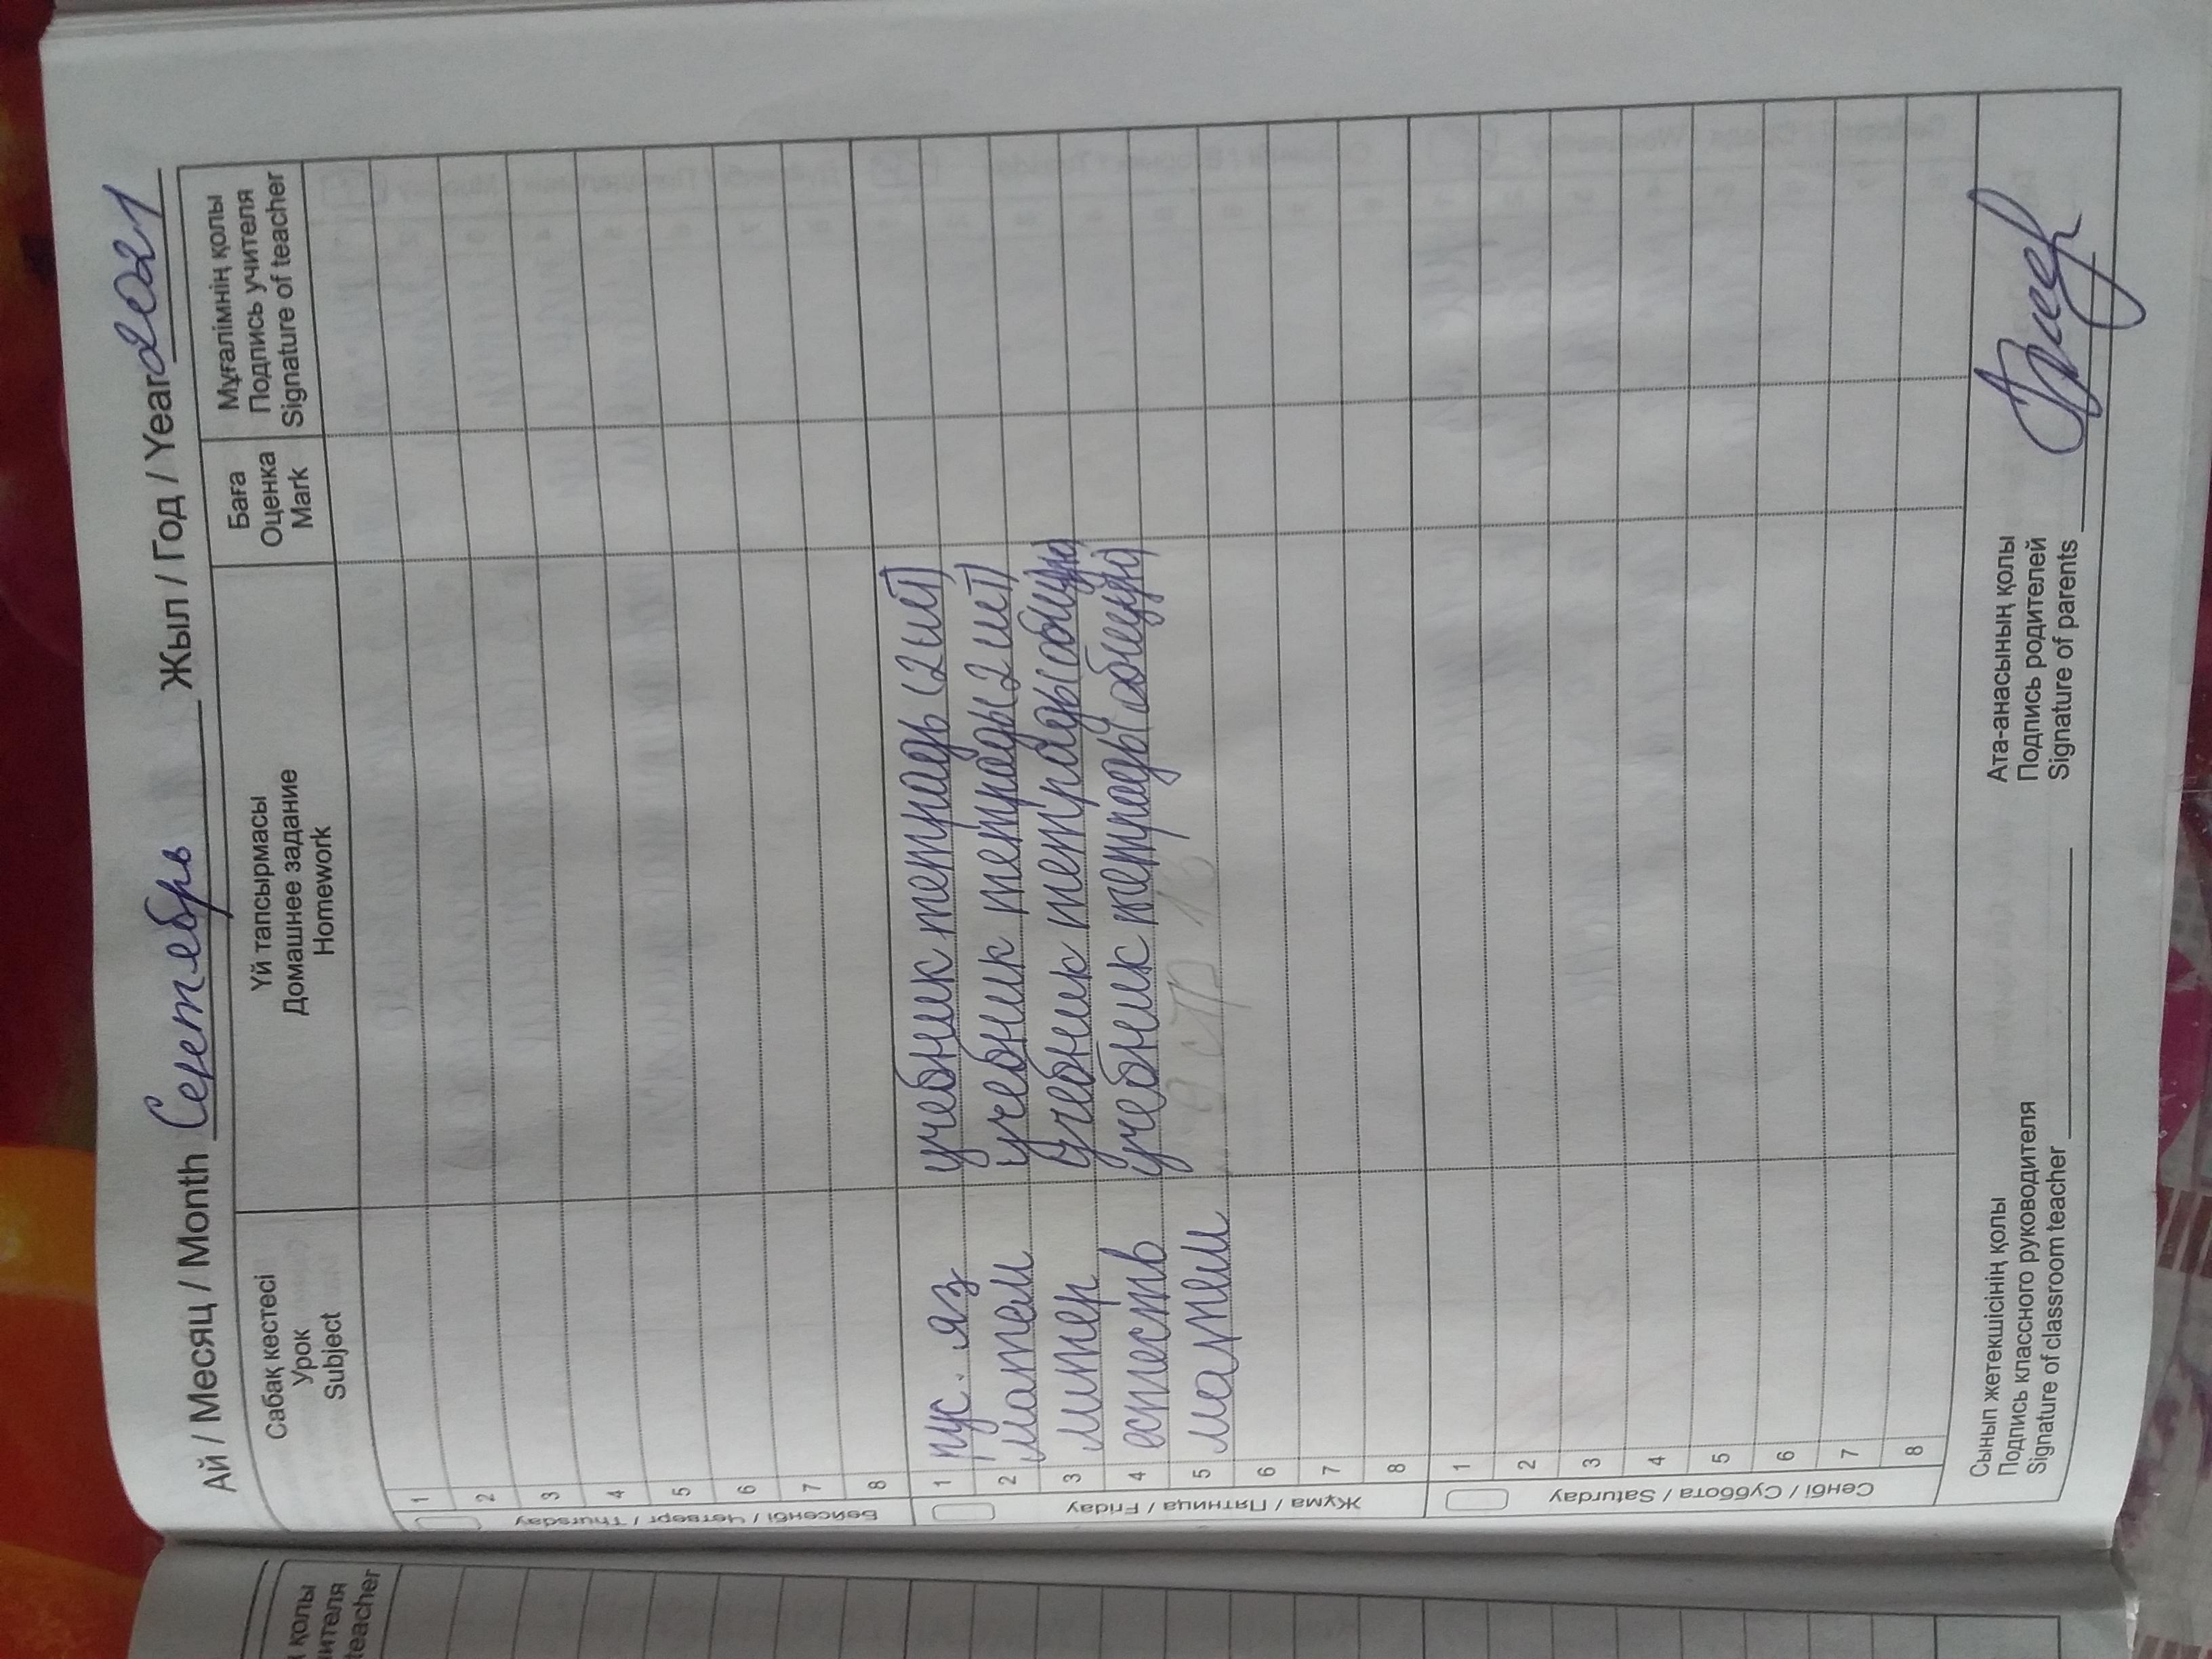 Ай / Месяц / Month Серетябрь Жыл / Год / Year 2021
Сабақ кестесі
Урок
Subject
Үй тапсырмасы
Домашнее задание
Homework
Баға
Оценка
Mark
Мұғалімнің қолы
Подпись учителя
Signature of teacher
Бейсенбі / Четверг / Thursday
1
2
3
4
5
6
7
8
Жұма / Пятница / Friday
1 рус. яз учебник тетрадь (2 шт)
2 матем учебник тетрады 2 шт)
3 литер учебник тетрады (общую)
4 естеств учебник тетрады (общую)
5 матем стр 16
6
7
8
Сенбі / Суббота / Saturday
1
2
3
4
5
6
7
8
Сынып жетекшісінің қолы
Подпись классного руководителя
Signature of classroom teacher
Ата-анасының қолы
Подпись родителей
Signature of parents
қолы
ителя
teacher